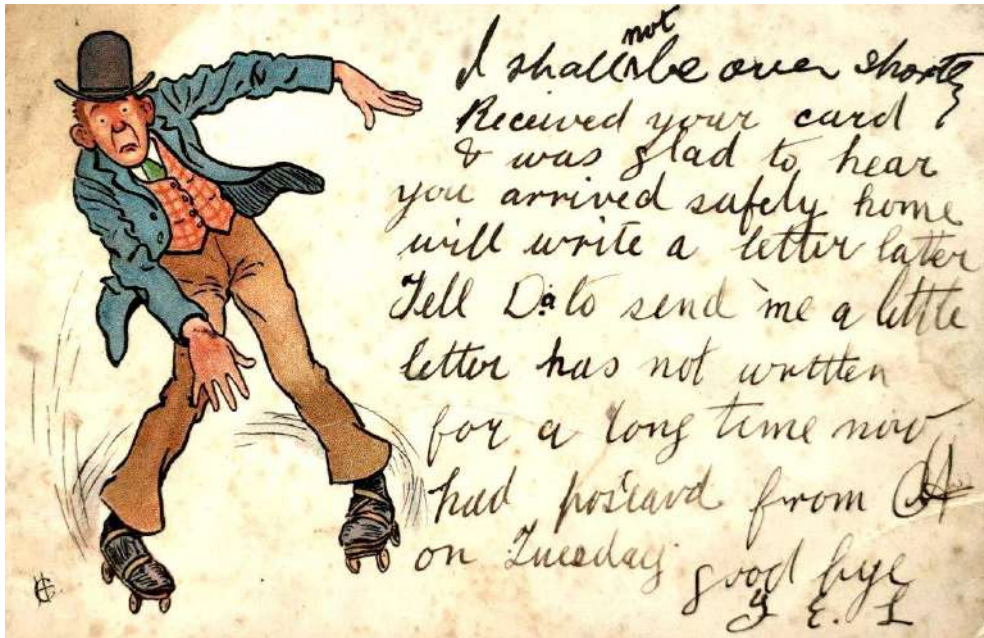 not
I shall be over shortly
Received your card
& was glad to hear
you arrived safely home
will write a letter latter
Tell Da to send me a little
letter has not written
for a long time now
had poscard from
on Tuesday
good bye
E. L